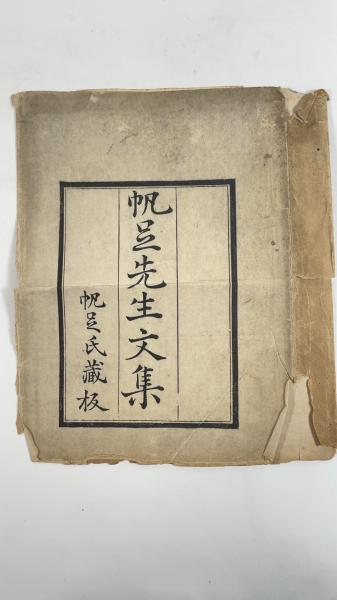 帆足先生文集
帆足氏藏板